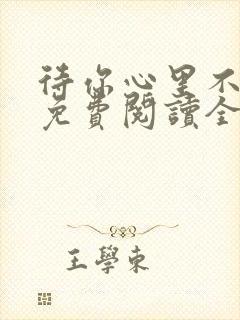 待你心里不
免費閱讀全
王學東